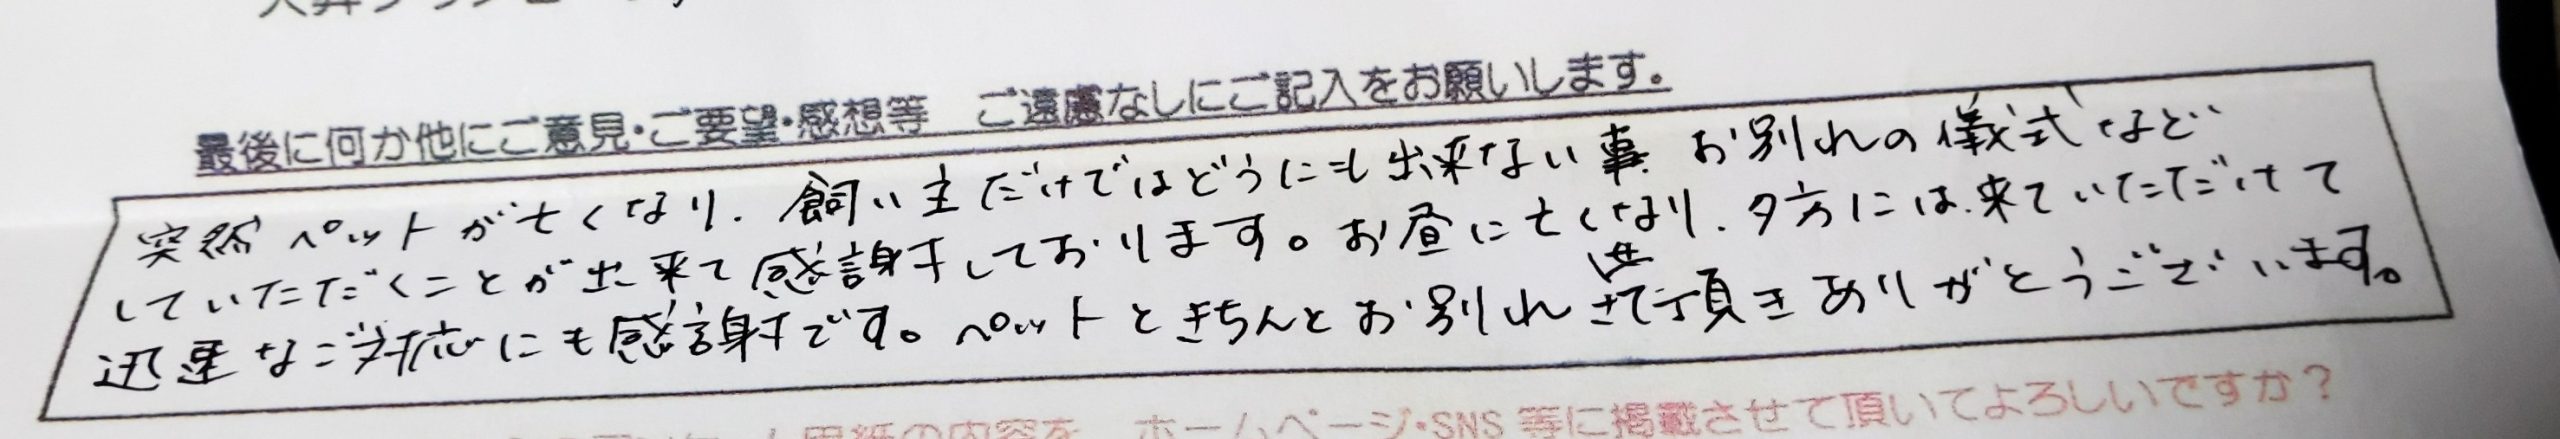 最後に何か他にご意見・ご要望・感想等　ご遠慮なしにご記入をお願いします。
突然ペットが亡くなり、飼い主だけではどうにも出来ない事 お別れの儀式など
していただくことが出来て感謝しております。お昼に亡くなり、夕方には来ていただけて
迅速なご対応にも感謝です。ペットときちんとお別れさせて頂きありがとうございます。
用紙の内容を　ホームページ・SNS 等に掲載させて頂いてよろしいですか？